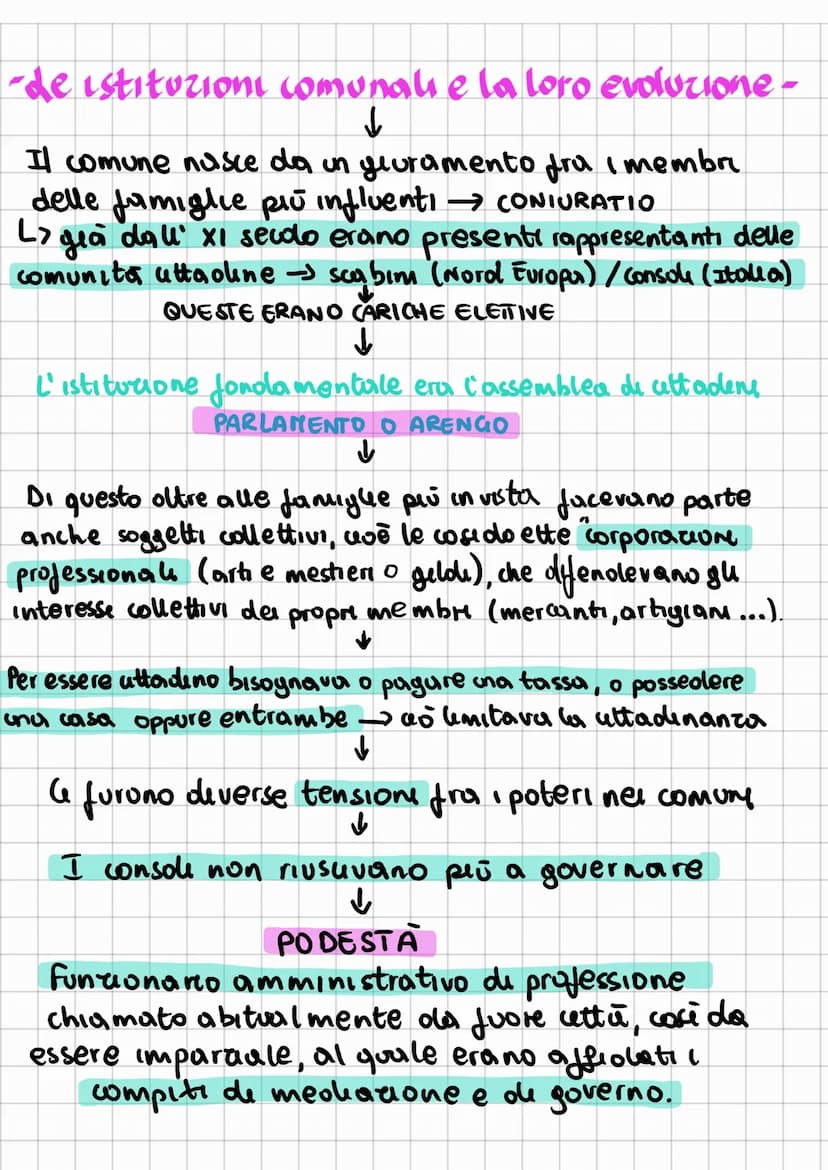 -Le istituzioni comunali e la loro evoluzione-
↓
Il comune nasce da un giuramento fra i membri
delle famiglie più influenti → CONIURATIO
↳ già dall' XI secolo erano presenti rappresentanti delle
comunità cittadine → scabini (Nord Europa) / consoli (Italia)
↓
QUESTE ERANO CARICHE ELETTIVE
↓
L'istituzione fondamentale era l'assemblea di cittadini
PARLAMENTO O ARENGO
↓
Di questo oltre alle famiglie più in vista facevano parte
anche soggetti collettivi, cioè le cosiddette "corporazioni
professionali (arti e mestieri o gilde), che difendevano gli
interessi collettivi dei propri membri (mercanti, artigiani ...).
↓
Per essere cittadino bisognava o pagare una tassa, o possedere
una casa oppure entrambe → ciò limitava la cittadinanza
↓
Ci furono diverse tensioni fra i poteri nei comuni
↓
I consoli non riuscivano più a governare
↓
PODESTÀ
Funzionario amministrativo di professione
chiamato abitualmente da fuori città, così da
essere imparziale, al quale erano affidati i
compiti di mediazione e di governo.